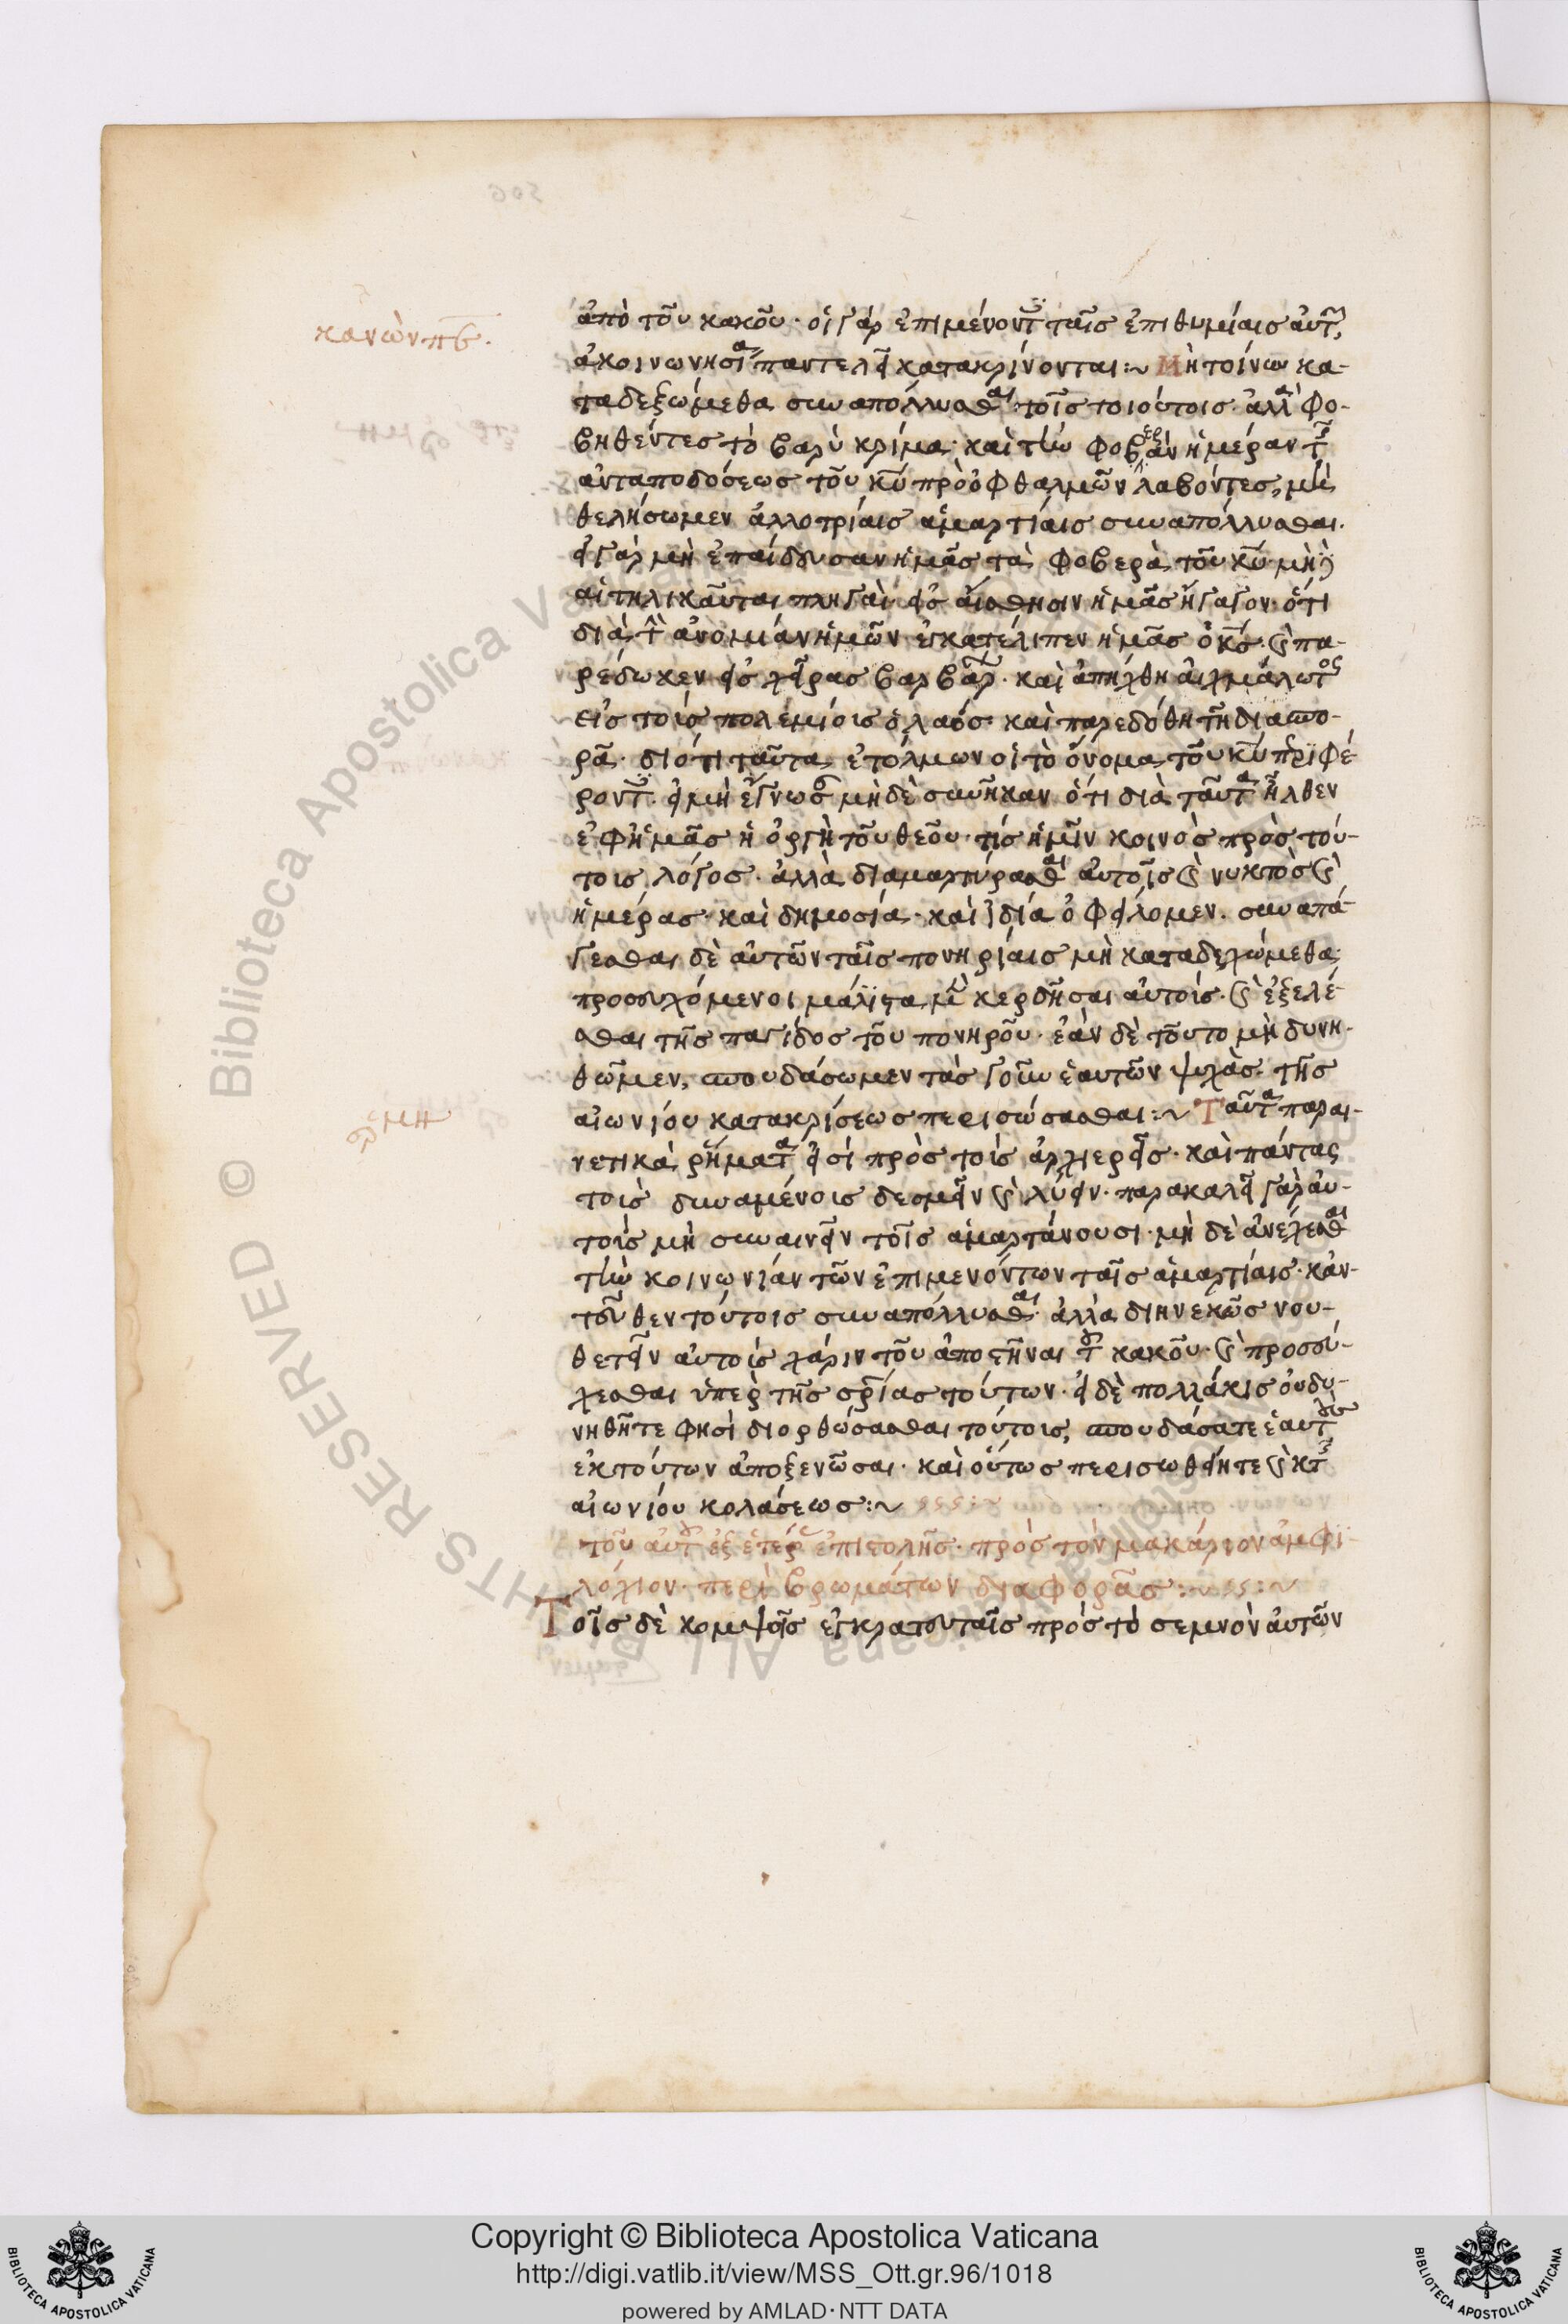 κανὼν πε.
ἀπὸ τοῦ κακοῦ· οἱ γὰρ ἐπιμένοντ ταῖς ἐπιθυμίαις αὐτ,
ἀκοινωνησία παντελεῖ κατακρίνονται:~ Μὴ τοίνυν κα-
ταδεξώμεθα συναπόλλυσθαι τοῖς τοιούτοις· ἀλλὰ φο-
βηθέντες τὸ βαρὺ κρίμα· καὶ τὴν φοβερὰν ἡμέραν τῆς
ἀνταποδόσεως τοῦ κυ πρὸ ὀφθαλμῶν λαβόντες, μὴ
θελήσωμεν ἀλλοτρίαις ἁμαρτίαις συναπόλλυσθαι.
εἰ γὰρ μὴ ἐπαίδευσαν ἡμᾶς τὰ φοβερὰ τοῦ κυ· μὴ δὲ
αἱ τηλικαῦται πληγαὶ εἰς αἴσθησιν ἡμᾶς ἤγαγον· ὅτι
διὰ τὴν ἀνομίαν ἡμῶν ἐγκατέλιπεν ἡμᾶς ὁ κς· καὶ πα-
ρέδωκεν εἰς χεῖρας βαρβάρων· καὶ ἀπήχθη αἰχμάλωτος
εἰς τοὺς πολεμίους ὁ λαός· καὶ παρεδόθη τῆ διασπο-
ρᾶ· διότι ταῦτα ἐτόλμων οἱ τὸ ὄνομα τοῦ κυ περιφέ-
ροντες· εἰ μὴ ἔγνωσαν μὴ δὲ συνῆκαν ὅτι διὰ ταῦτα ἦλθεν
ἐφ' ἡμᾶς ἡ ὀργὴ τοῦ θεοῦ· τίς ἡμῖν κοινὸς πρὸς τού-
τους λόγος· ἀλλὰ διαμαρτύρασθαι αὐτοῖς καὶ νυκτὸς καὶ
ἡμέρας· καὶ δημοσία· καὶ ἰδία ὀφείλομεν· συναπά-
γεσθαι δὲ αὐτῶν ταῖς πονηρίαις μὴ καταδεχώμεθα·
προσευχόμενοι μάλιστα μὲν κερδῆσαι αὐτούς· καὶ ἐξελέ-
σθαι τῆς παγίδος τοῦ πονηροῦ· ἐὰν δὲ τοῦτο μὴ δυνη-
θῶμεν, σπουδάσωμεν τὰς γοῦν ἑαυτῶν ψυχὰς τῆς
αἰωνίου κατακρίσεως περισώσασθαι:~ Ταῦτα παραι-
ἑρμη
νετικὰ ῥήματα εἰσὶ πρὸς τοὺς ἀρχιερεῖς· καὶ πάντας
τοὺς δυναμένους δεσμεῖν καὶ λύειν· παρακαλεῖ γὰρ αὐ-
τοὺς μὴ συναινεῖν τοῖς ἁμαρτάνουσι· μὴ δὲ ἀνέχεσθαι
τὴν κοινωνίαν τῶν ἐπιμενόντων ταῖς ἁμαρτίαις· κἀν-
τεῦθεν τούτοις συναπόλλυσθαι· ἀλλὰ διηνεκῶς νου-
θετεῖν αὐτοὺς χάριν τοῦ ἀποστῆναι τοῦ κακοῦ· καὶ προσεύ-
χεσθαι ὑπὲρ τῆς σρίας τούτων· εἰ δὲ πολλάκις οὐ δυ-
νηθῆτε φησὶ διορθώσασθαι τούτους, σπουδάσατε ἑαυτοὺς
ἐκ τούτων ἀποξενῶσαι· καὶ οὕτως περισωθείητε ἐκ τῆς
αἰωνίου κολάσεως:~
τοῦ αὐτοῦ ἐξ ἑτέρας ἐπιστολῆς· πρὸς τὸν μακάριον ἀμφι-
λόχιον· περὶ βρωμάτων διαφορᾶς:~
Τοῖς δὲ κομψοῖς ἐγκρατευταῖς πρὸς τὸ σεμνὸν αὐτῶν
© Biblioteca Apostolica Vaticana ALL RIGHTS RESERVED
Copyright © Biblioteca Apostolica Vaticana
http://digi.vatlib.it/view/MSS_Ott.gr.96/1018
powered by AMLAD·NTT DATA
BIBLIOTECA APOSTOLICA VATICANA
BIBLIOTECA APOSTOLICA VATICANA